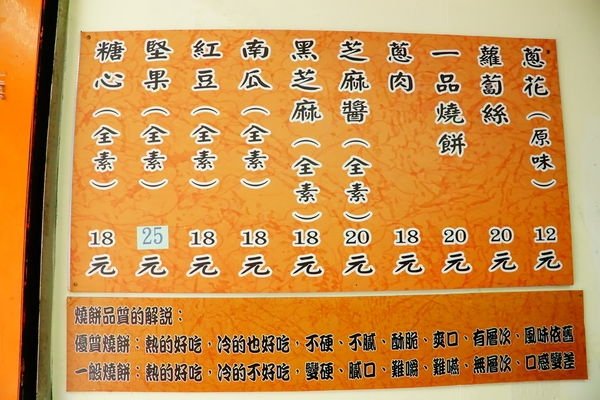 蔥花(原味)12元
蘿蔔絲20元
一品燒餅20元
蔥肉18元
芝麻醬(全素)20元
黑芝麻(全素)18元
南瓜(全素)18元
紅豆(全素)18元
堅果(全素)25元
糖心(全素)18元
燒餅品質的解說：
優質燒餅：熱的好吃、冷的也好吃、不硬、不膩、酥脆、爽口、有層次、風味依舊
一般燒餅：熱的好吃、冷的不好吃、變硬、膩口、難嚼、難嚥、無層次、口感變差